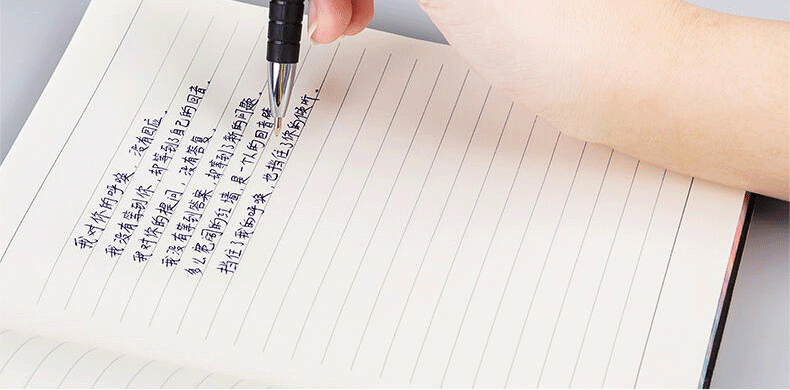 我对你的呼唤，没有回应。
我没有等到你，却等到了自己的回音。
我对你的提问，没有答复。
我没有等到答案，却等到了新的问题。
多么宽阔的红墙，是一个个的回音壁
挡住了我的呼唤，也挡住了你的倾听。